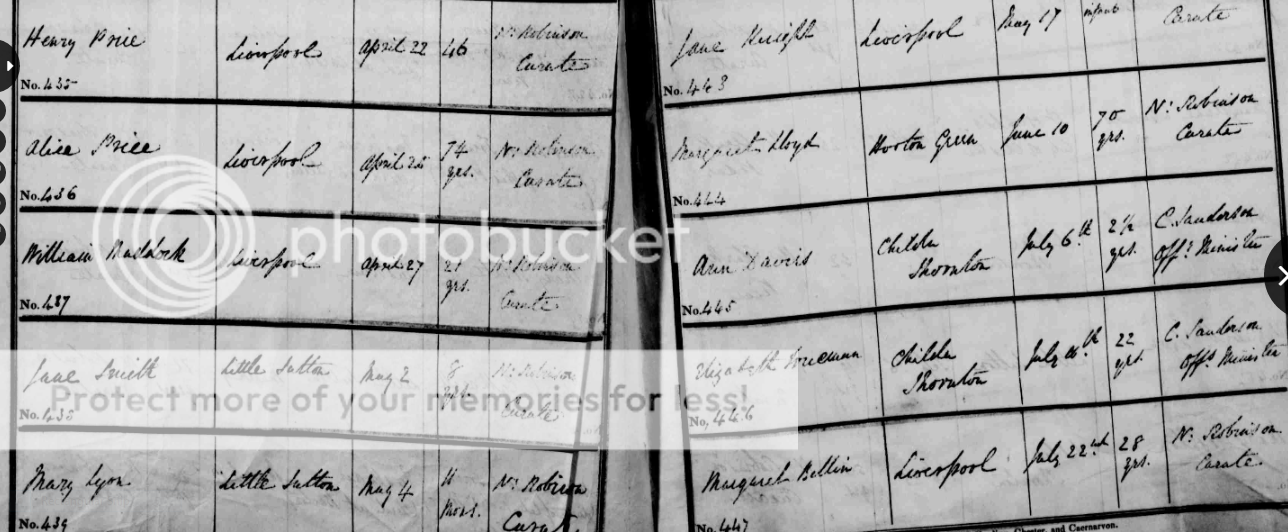 Henry Price Liverpool April 22 46 Ns. Robinson
Curate
No. 435
Alice Price Liverpool April 25 74 Ns. Robinson
yrs. Curate
No. 436
William Ruddock Liverpool April 27 21 Ns. Robinson
yrs. Curate
No. 437
Jane Smith Little Sutton May 2 8 Ns. Robinson
yrs. Curate
No. 438
Mary Lyon Little Sutton May 4 11 Ns. Robinson
Mos. Curate
No. 439
Jane Knight Liverpool May 17 infant Curate
No. 443
Margaret Lloyd Hooton Green June 10 70 Ns. Robinson
yrs. Curate
No. 444
Ann Davis Childer July 6th 2½ C. Sanderson
Thornton yrs. Offg. Minister
No. 445
Elizabeth Childer July 22 C. Sanderson
Thornton yrs. Offg. Minister
No. 446
Margaret Bellin Liverpool July 22nd 28 Ns. Robinson
yrs. Curate
No. 447
Chester, and Caernarvon.
photobucket
Protect more of your memories for less!